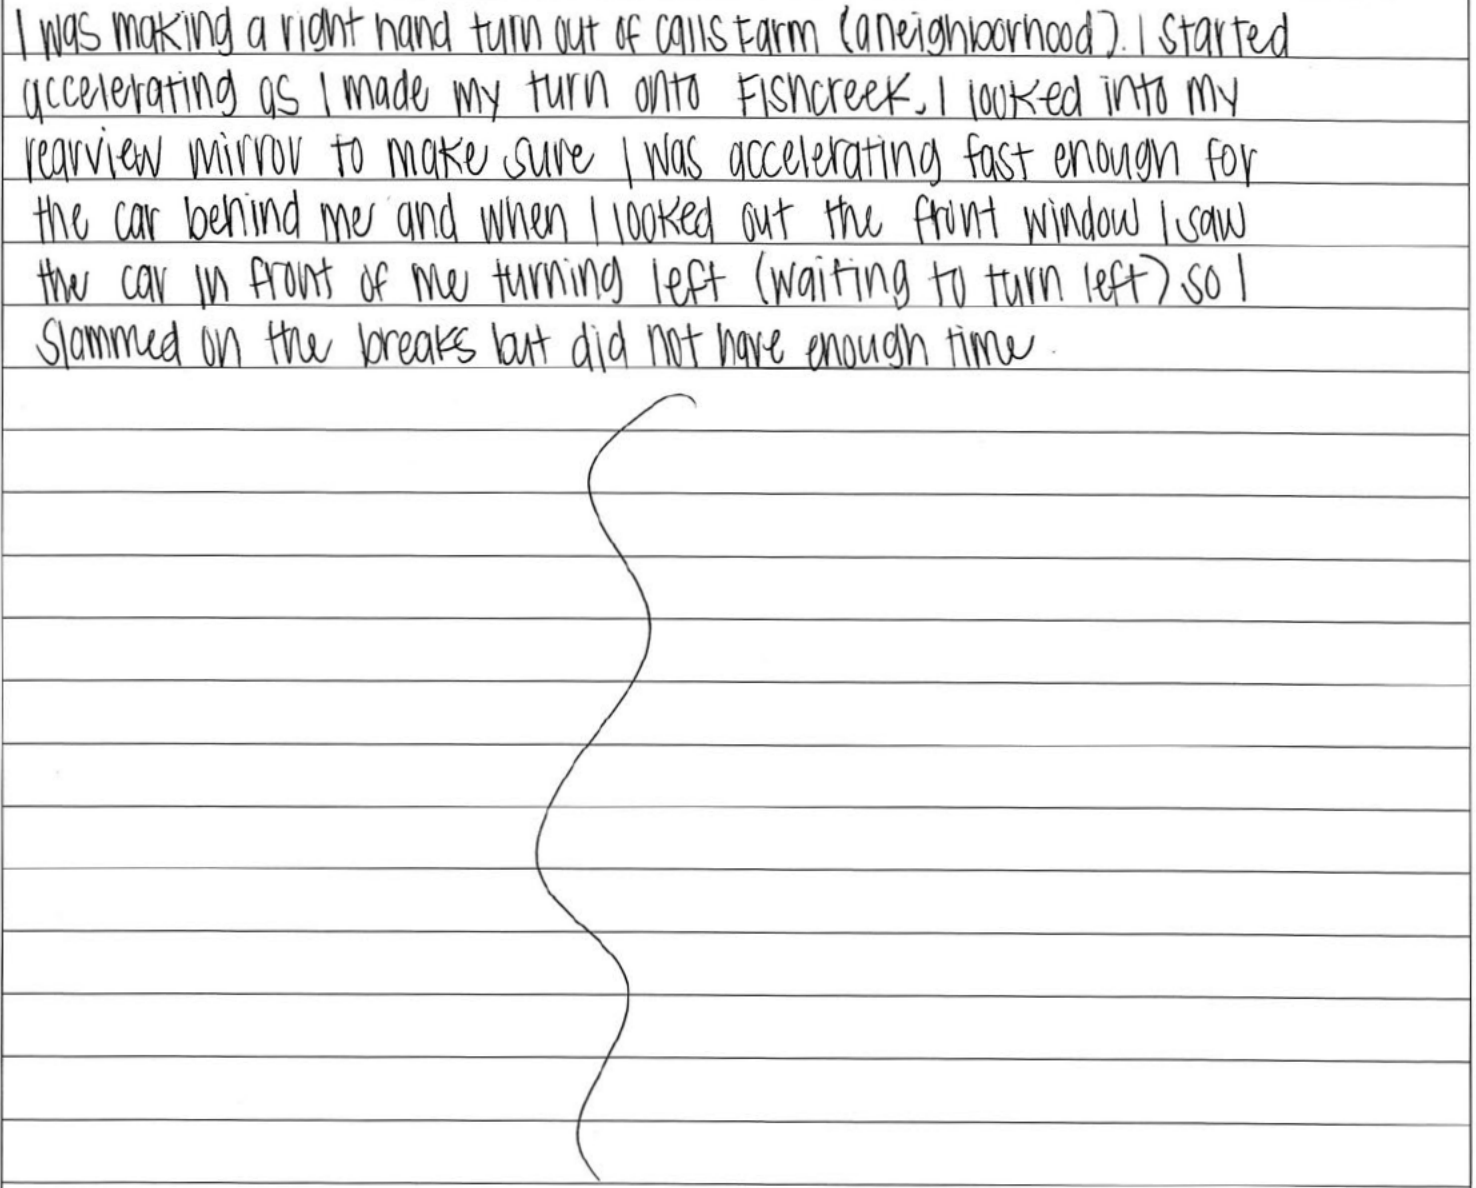 I was making a right hand turn out of Calls Farm (a neighborhood). I started
accelerating as I made my turn onto Fishcreek. I looked into my
rearview mirror to make sure I was accelerating fast enough for
the car behind me and when I looked out the front window I saw
the car in front of me turning left (waiting to turn left) so I
slammed on the breaks but did not have enough time